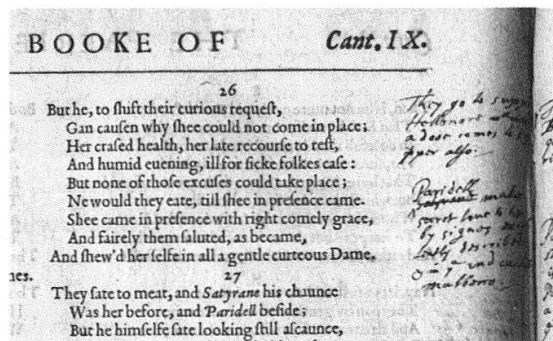 BOOKE OF Cant. IX.
26
But he, to shift their curious request,
Gan causen why shee could not come in place;
Her crased health, her late recourse to rest,
And humid euening, ill for sicke folkes case:
But none of those excuses could take place;
Ne would they eate, till shee in presence came.
Shee came in presence with right comely grace,
And fairely them saluted, as became,
And shew'd her selfe in all a gentle curteous Dame.
nes.
27
They sate to meat, and Satyrane his chaunce
Was her before, and Paridell beside;
But he himselfe sate looking still ascaunce,
They go to
Hellenore
a doer comes to
per also.
Paridell
Satyrane
secret loue to
by signes
described